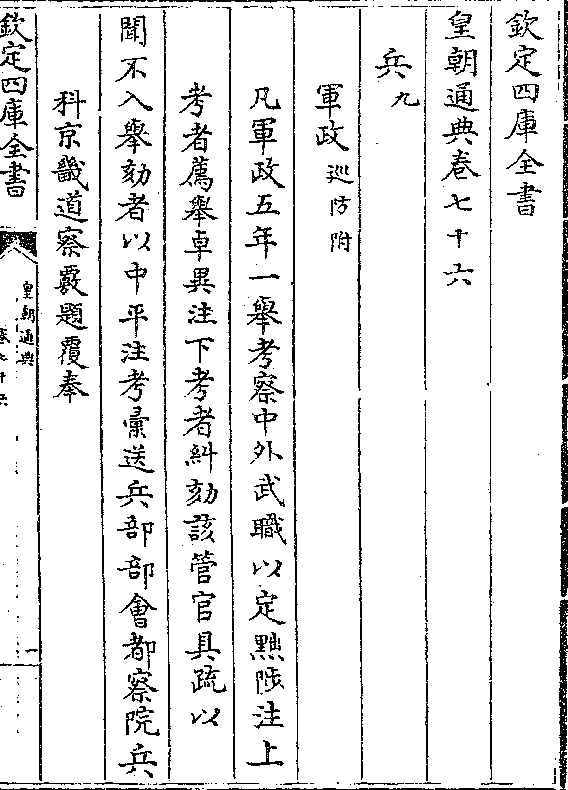 欽定四庫全書
皇朝通典卷七十六
兵九
軍政巡防附
凡軍政五年一舉考察中外武職以定黜陟注上
考者薦舉卓異注下考者糾劾該管官具疏以
聞不入舉劾者以中平注考彙送兵部部會都察院兵
科京畿道察覈題覆奉
欽定四庫全書
皇朝通典
卷七十六
一